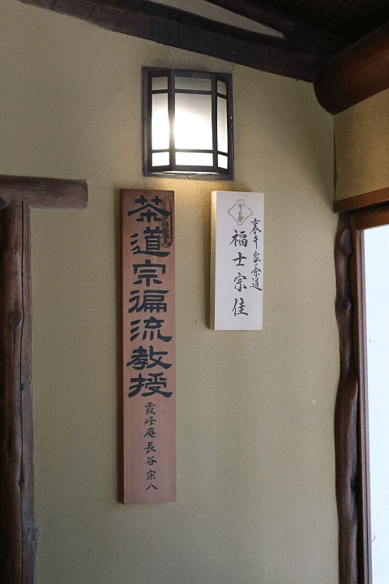 茶道宗徧流教授
霞峰庵長谷宗八
裏千家茶道
福士宗佳